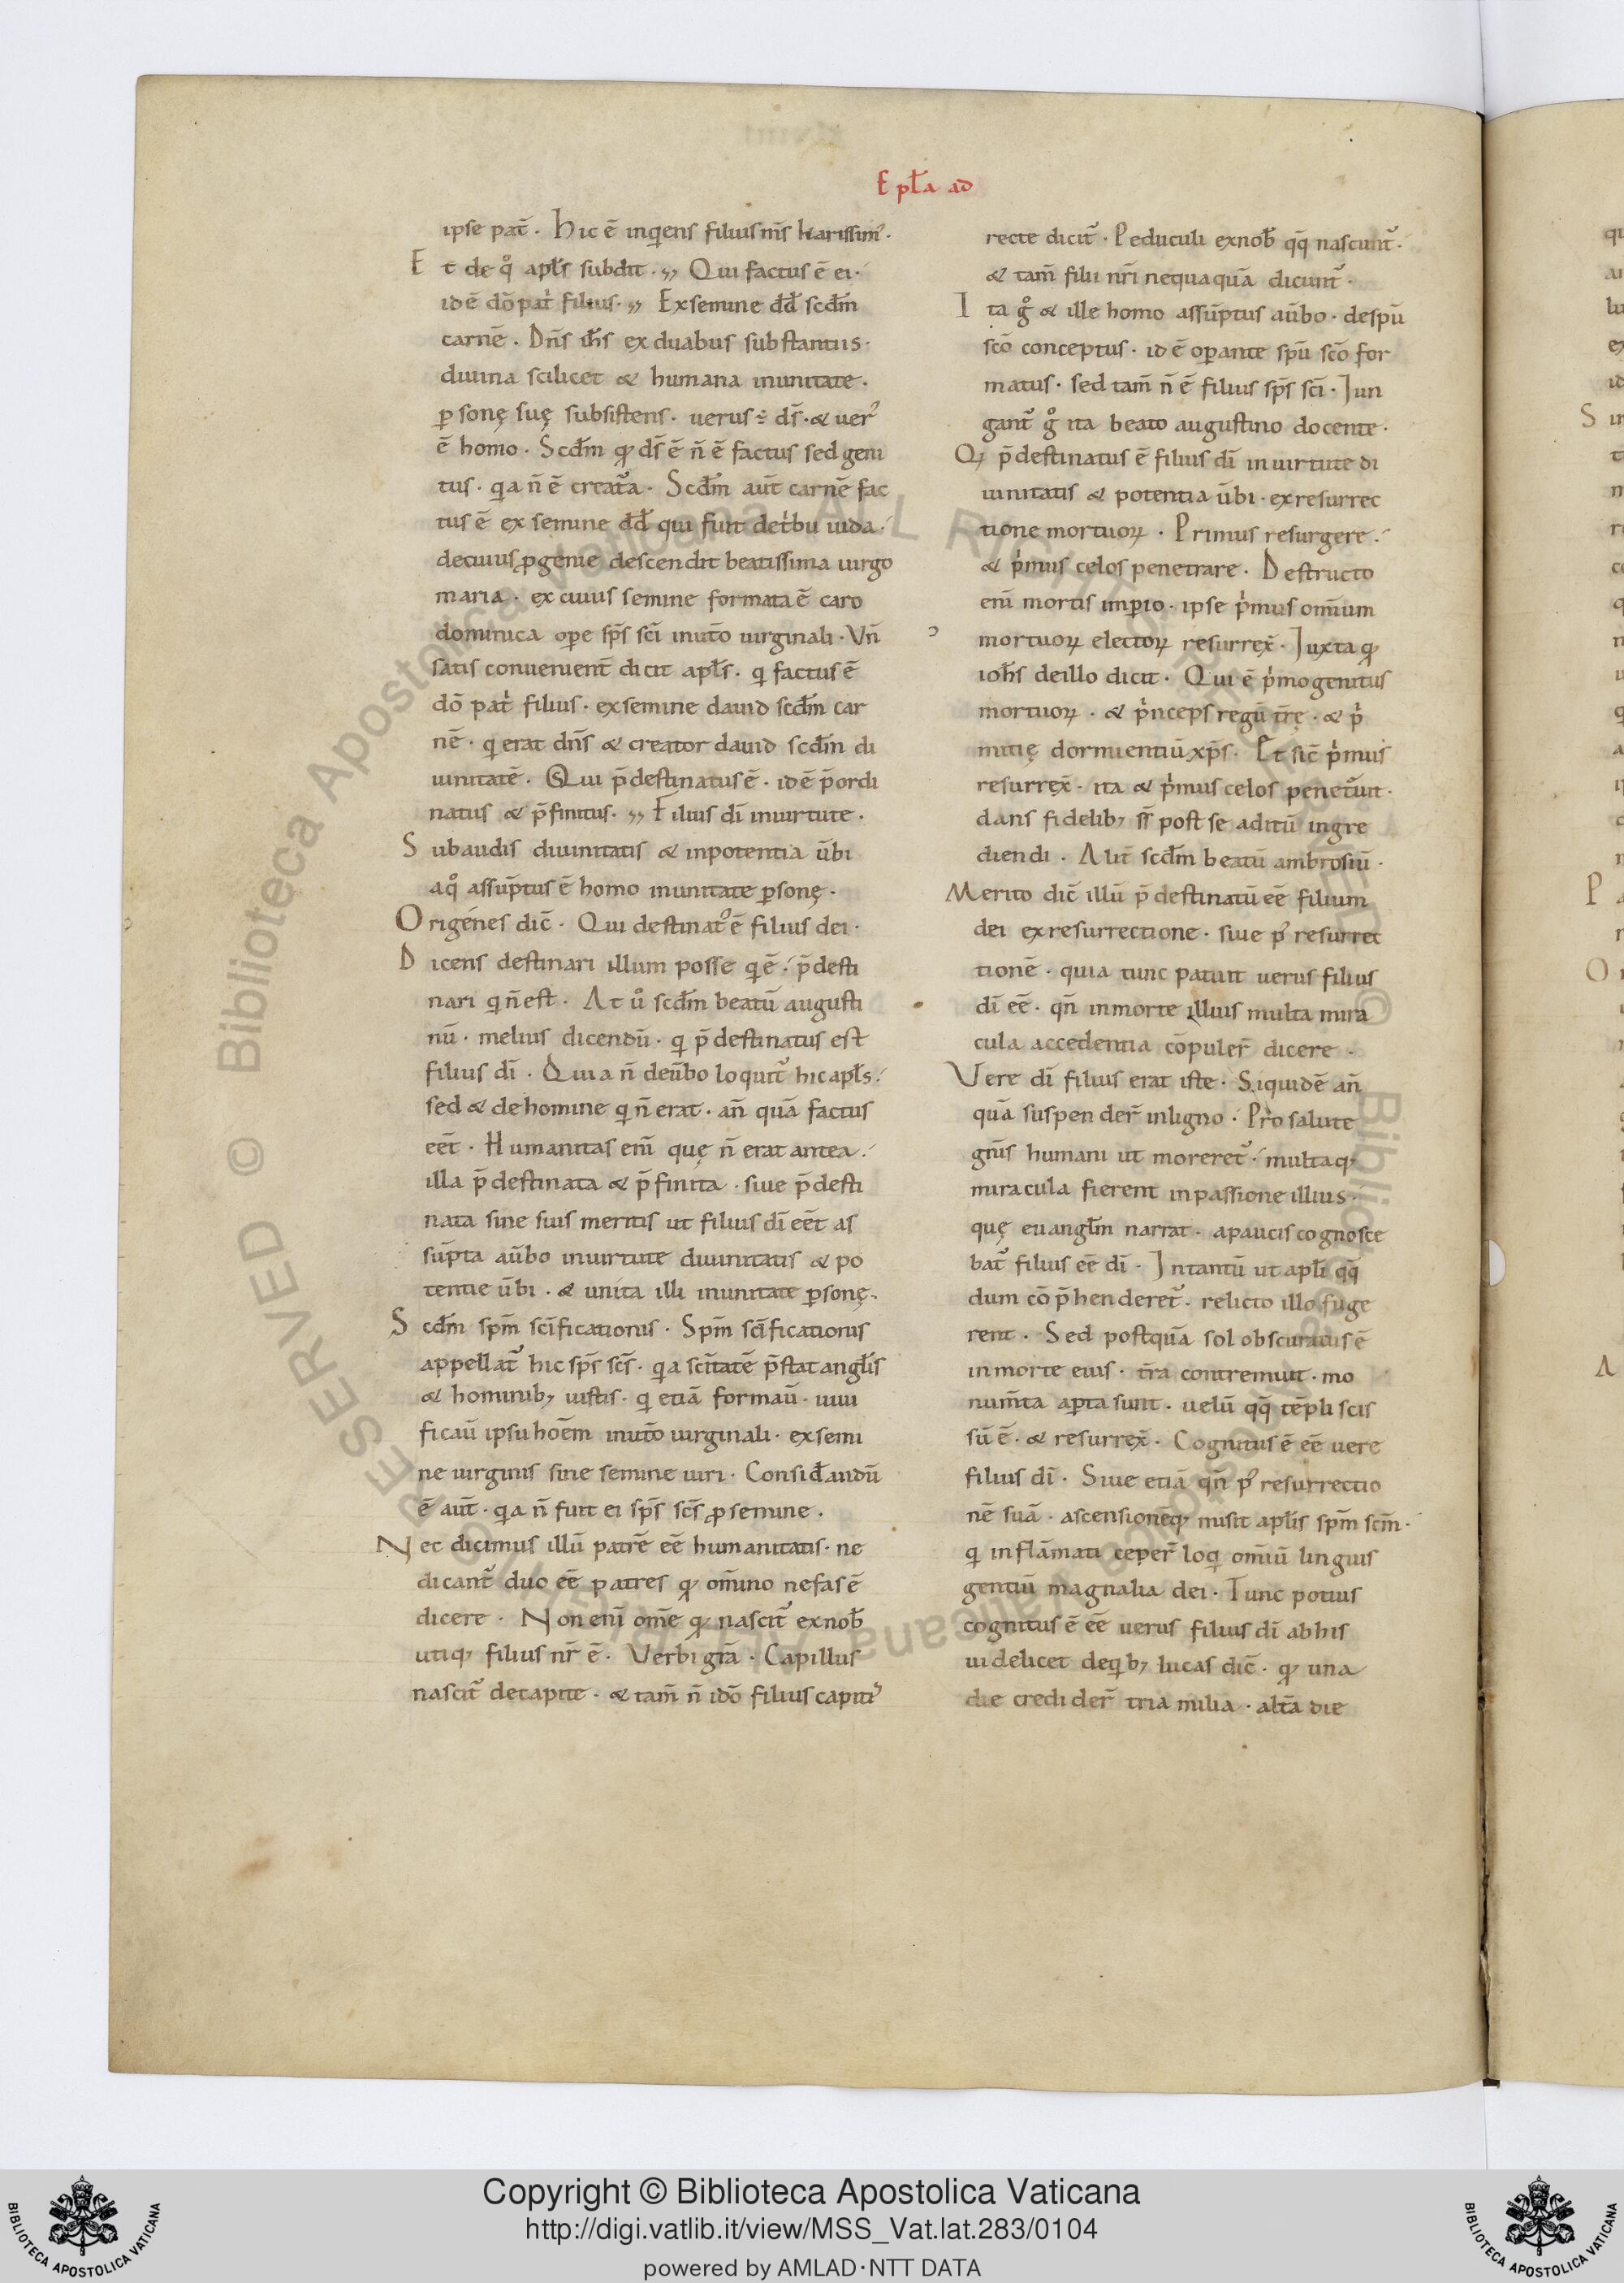 Epl̅a ad
ipse pat̅ · Hic ē inqiens filius m̅s karissim᷒ ·
Et de qͦ apl̅s subdit · Qui factus ē ei ·
id ē dō patͥ filius · Ex semine dd̅ scd̅m
carnē · Dn̅s ih̅s ex duabus substantiis ·
diuina scilicet & humana inunitate ·
ꝑsonę suę subsistens · uerus ÷ ds̅ · & uer᷒
ē homo · Scd̅m qđ ds̅ ē n̅ ē factus sed geni
tus · qia n̅ ē creatᷓa · Scd̅m aut̅ carnē fac
tus ē ex semine dd̅ qui fuit detͥbu iuda ·
decuius ꝓgenie descendit beatissima uirgo
maria · ex cuius semine formata ē caro
dominica ope sp̅s sc̅i inut̅o uirginali · Vn̅
satis conuenient̅ dicit apl̅s · q factus ē
dō patͥ filius · exsemine dauid scd̅m car
nē · q erat dn̅s & creator dauid scd̅m di
uinitatē · Qui p̅destinatus ē · id ē p̅ordi
natus & p̅finitus · Filius dī inuirtute ·
Subaudis diuinitatis & inpotentia ūbi
aqͦ assūptus ē homo inunitate ꝑsonę ·
Origénes dic̅ · Qui destinat᷒ ē filius dei ·
Dicens destinari illum posse q ē · p̅desti
nari q n̅ est · At uͦ scd̅m beatū augusti
nū · melius dicendū · q p̅destinatus est
filius dī · Quia n̅ deūbo loquit᷒ hic apl̅s ·
sed & dehomine q n̅ erat · an̅ quā factus
eēt · Humanitas enī quę n̅ erat antea ·
illa p̅destinata & p̅finita · siue p̅desti
nata sine suis meritis ut filius dī eēt as
sūpta aūbo inuirtute diuinitatis & po
tentie ūbi · & unita illi inunitate ꝑsonę ·
Scd̅m sp̅m sc̅ificationis · Sp̅m sc̅ificationis
appellat᷒ hic sp̅s sc̅s · qia sc̅itatē p̅stat angl̅is
& hominib; iustis · q etiā formaū · uiui
ficaū ipsū hoēm inut̅o uirginali · exsemi
ne uirginis sine semine uiri · Considandū
ē aut̅ · qia n̅ fuit ei sp̅s sc̅s ꝓ semine ·
Nec dicimus illū patrē eē humanitatis · ne
dicant᷒ duo eē patres qđ om̅ino nefas ē
dicere · Non enī om̅e qđ nascit᷒ exnob̅
utiq; filius nr̅ ē · Verbi grā · Capillus
nascit᷒ decapite · & tam̅ n̅ idō filius capiti᷒
recte dicit᷒ · Peduculi exnob̅ qq̅ nascunt᷒ ·
& tam̅ filii nr̅i nequaquā dicunt᷒ ·
Ita gͦ & ille homo assūptus aūbo · despū
sc̅o conceptus · id ē opante spū sc̅o for
matus · sed tam̅ n̅ ē filius sp̅s sc̅i · Iun
gant᷒ gͦ ita beato augustino docente ·
Qđ p̅destinatus ē filius dī inuirtute di
uinitatis & potentia ūbi · exresurrec
tione mortuoꝝ · Primus resurgere ·
& pͥmus celos penetrare · Destructo
enī mortis impio · ipse pͥmus omīum
mortuoꝝ electoꝝ resurrex̅ · Iuxta qđ
ioh̅s deillo dicit · Qui ē pͥmogenitus
mortuoꝝ · & pͥnceps regū tr̅ę · & pͥ
mitię dormientiū xp̅s · Et sic̅ pͥmus
resurręx̅ · ita & pͥmus celos penetᷓuit ·
dans fidelib; ss̅ post se aditū ingre
diendi · Alit̅ scd̅m beatū ambrosiū ·
Merito dic̅ illū p̅destinatū eē filium
dei exresurrectione · siue p᷒ resurrec
tionē · quia tunc patuit uerus filius
dī eē · qn̅ inmorte illius multa mira
cula accedentia cōpuler̅ dicere ·
Vere dī filius erat iste · Siquidē an̅
quā suspender̅ inligno · Pro salute
gn̅is humani ut moreret᷒ · multaq;
miracula fierent inpassione illius ·
quę euangl̅m narrat · apaucis cognosce
bat᷒ filius eē dī · Intantū ut apl̅i qq̅
dum cōp̅henderet᷒ · relicto illo fuge
rent · Sed postquā sol obscuratus ē
inmorte eius · tr̅a contremuit · mo
num̅ta apta sunt · uelū qq̅ tēpli scis
sū ē · & resurrex̅ · Cognitus ē eē uere
filius dī · Siue etiā qn̅ p᷒ resurrectio
nē suā · ascensionēq; misit apl̅is sp̅m sc̅m ·
q inflāmati ceper̅ loq omīū linguis
gentiū magnalia dei · Tunc potius
cognitus ē eē uerus filius dī abhis
uidelicet deqib; lucas dic̅ · qđ una
die credider̅ tria milia · alt̅a die
Copyright © Biblioteca Apostolica Vaticana
http://digi.vatlib.it/view/MSS_Vat.lat.283/0104
powered by AMLAD·NTT DATA
BIBLIOTECA APOSTOLICA VATICANA
BIBLIOTECA APOSTOLICA VATICANA